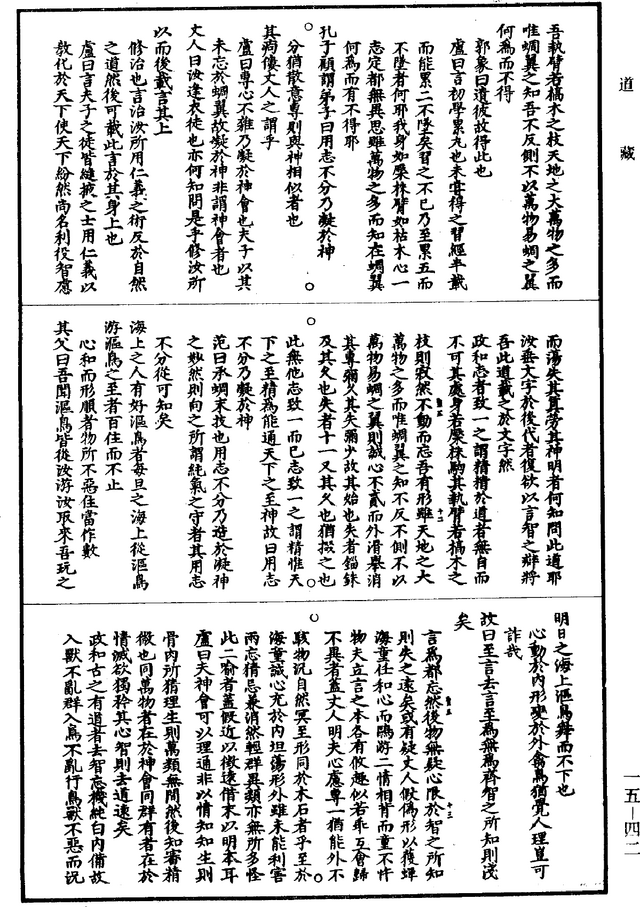 道藏
吾執臂若槁木之枝天地之大萬物之多而
唯蜩翼之知吾不反側不以萬物易蜩之翼
何為而不得
郭象曰遺彼故得此也
盧曰言初學累丸也未嘗得之習經半載
而能累二不墜矣習之不已乃至累五而
不墜者何耶我身如橜株臂如枯木心一
志定都無異思雖萬物之多而知在蜩翼
何為而有不得耶
孔子顧謂弟子曰用志不分乃凝於神
分猶散意專則與神相似者也
其痀僂丈人之謂乎
盧曰專心不雜乃凝於神會也夫子以其
未忘於蜩翼故凝於神非謂神會者也
丈人曰汝逢衣徒也亦何知問是乎修汝所
以而後載言其上
修治也言治汝所用仁義之術反於自然
之道然後可載此言於其身上也
盧曰言夫子之徒皆縫掖之士用仁義以
教化於天下使天下紛然尚名利役智慮
而蕩失其真勞其神明者何知問此道耶
汝垂文字於後代者復欲以言智之辯將
吾此道載之於文字然
政和志者致一之謂精精於道者無自而
不可其處身若橜株駒其執臂若槁木之
枝則寂然不動而忘吾有形雖天地之大
萬物之多而唯蜩翼之知不反不側不以
萬物易蜩之翼則誠心不貳而外滑舉消
其專彌乂其失彌少故其始也失者錙銖
及其久也失者十一又其久也猶掇之也
此無他志致一而已志致一之謂精惟天
下之至精為能通天下之至神故曰用志
不分乃凝於神
范曰承蜩末技也用志不分乃造於凝神
之妙然則向之所謂純氣之守者其用志
不分從可知矣
海上之人有好漚鳥者每旦之海上從漚鳥
游漚鳥之至者百住而不止
心和而形順者物所不惡住當作數
其父曰吾聞漚鳥皆從汝游汝取來吾玩之
明日之海上漚鳥舞而不下也
心動於內形變於外禽鳥猶覺人理豈可
詐哉
故曰至言去言至為無為齊智之所知則淺
矣
言為都忘然後物無疑心限於智之所知
則失之遠矣或有疑丈人假偽形以獲蟬
海童任和心而鷗游二情相背而童不忤
物夫立言之本各有攸趣似若乖互會歸
不異者蓋丈人明夫心慮專一猶能外不
駭物況自然冥至形同於木石者乎至於
海童誠心充於內坦蕩形外雖未能利害
兩忘猜忌兼消然輕群異類亦無所多怪
此二喻者蓋假近以徵遠借末以明本耳
盧曰夫神會可以理通非以情知知生則
骨肉所猜理生則萬類無間然後知審精
微也同萬物者在於神會同群有者在於
情滅欲獨矜其心智則去道遠矣
政和古之有道者去智忘機純白內備故
入獸不亂群入鳥不亂行鳥獸不惡而況
一五—四二